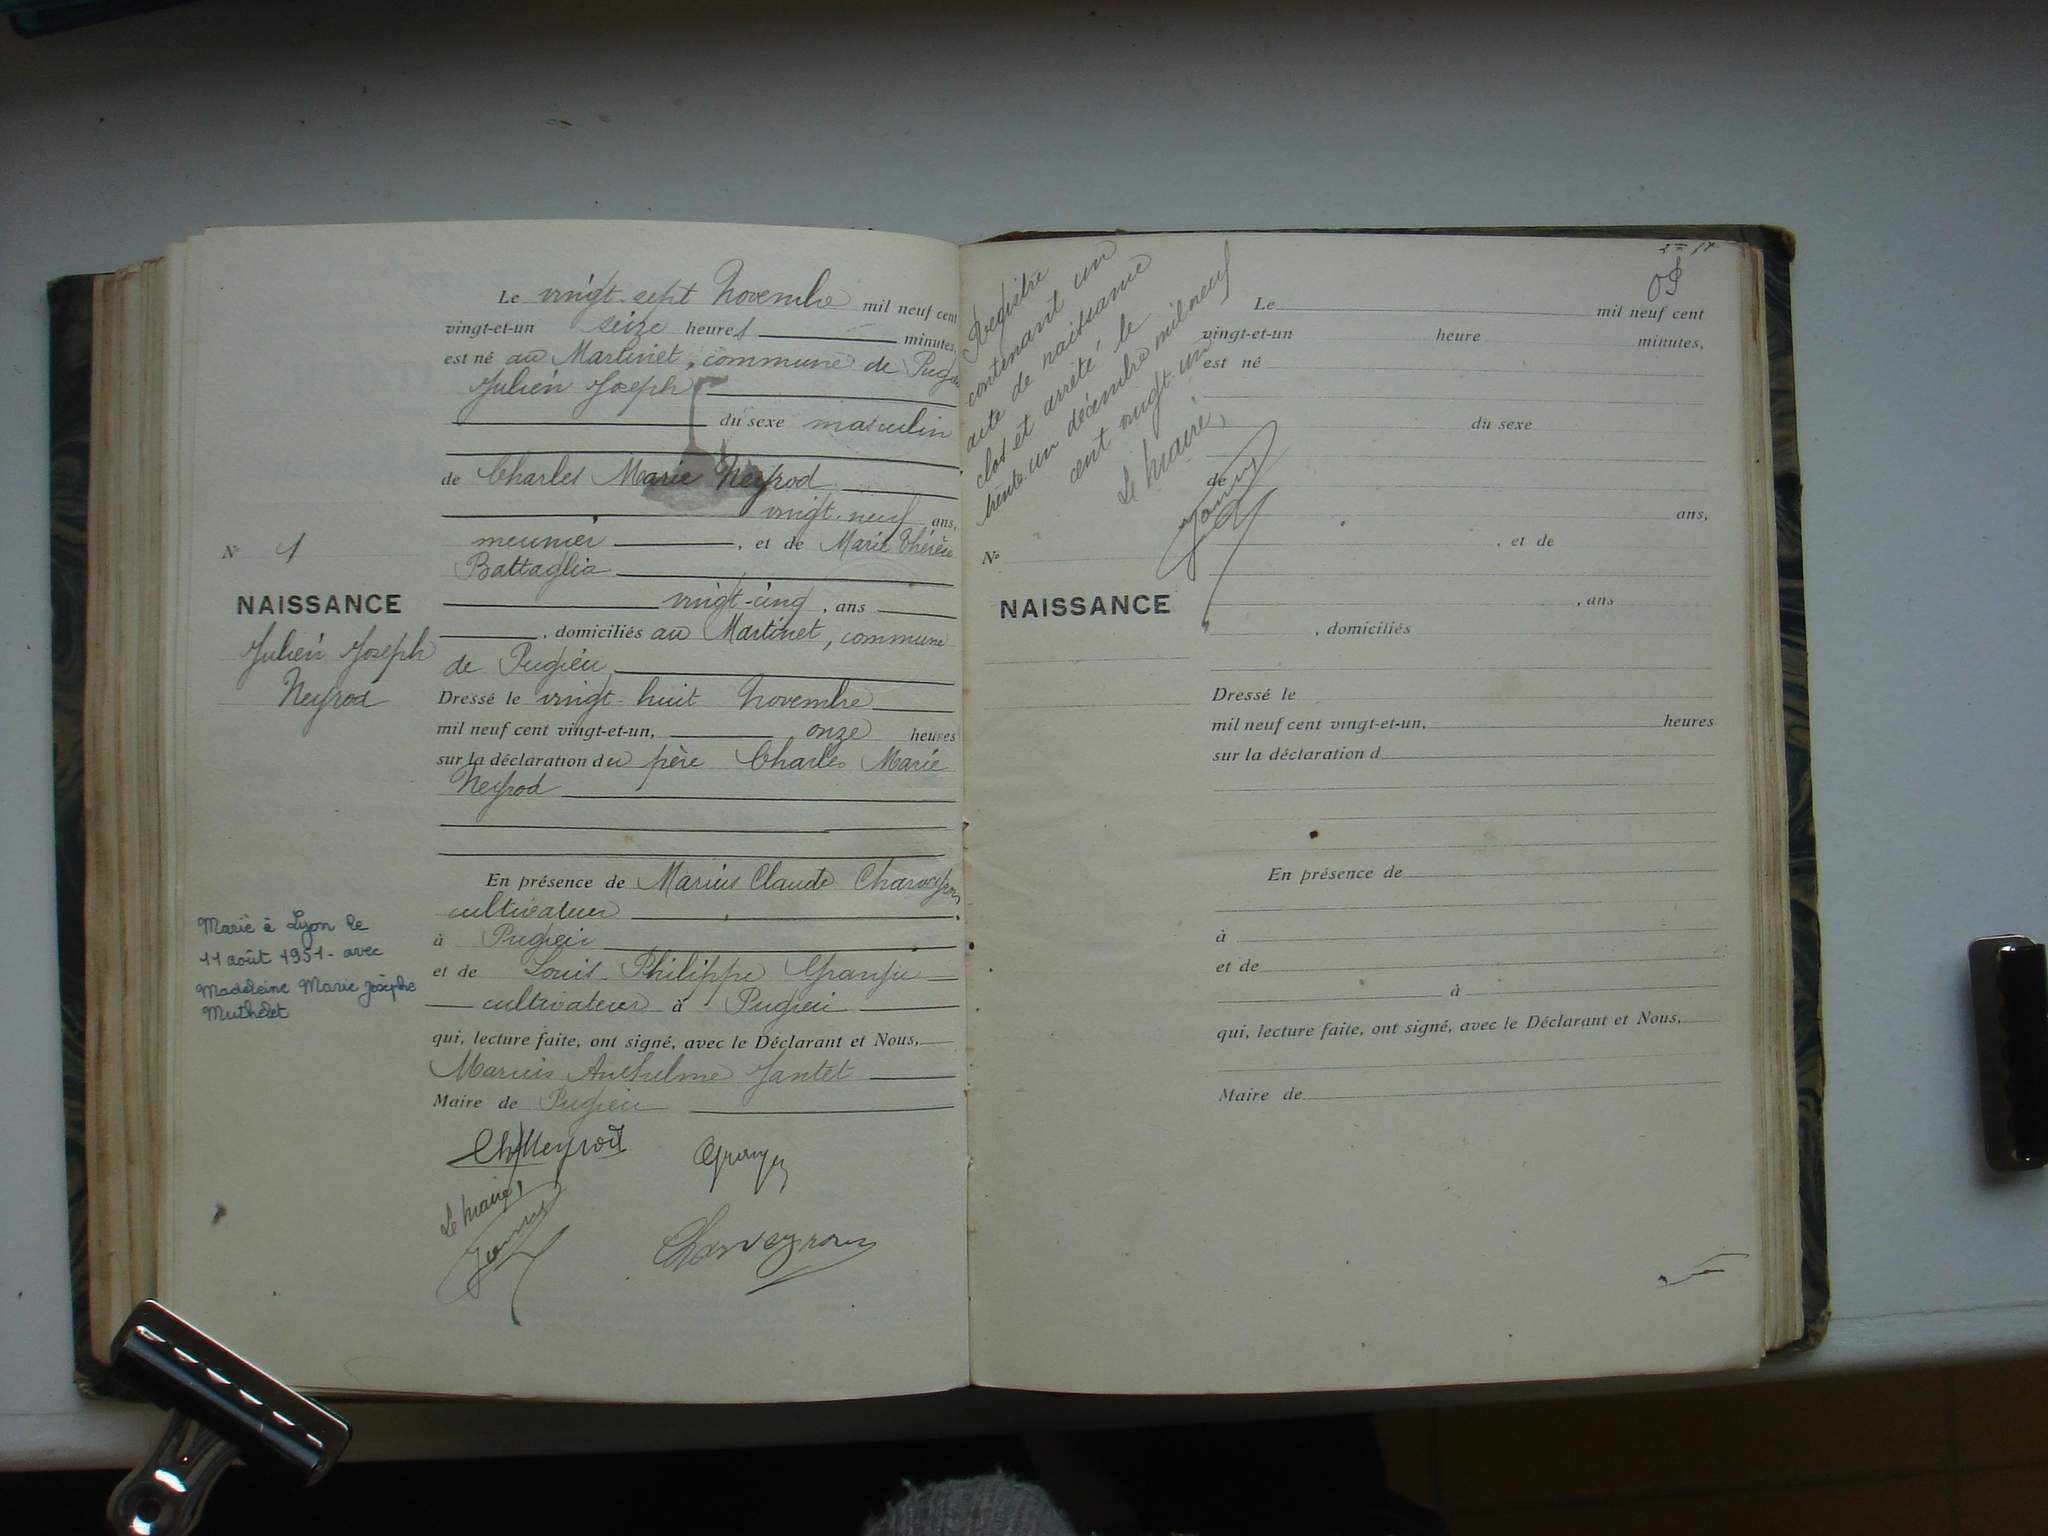 Le vingt-sept Novembre mil neuf cent
vingt-et-un seize heures minutes,
est né au Martinet, commune de
Julien Joseph
du sexe masculin
de Charles Marie Neyrod
vingt-neuf ans,
meunier, et de Marie Thérèse
Battaglia
vingt-cinq, ans
, domiciliés au Martinet, commune
de Pugieu
Dressé le vingt-huit Novembre
mil neuf cent vingt-et-un, onze heures
sur la déclaration du père Charles Marie
Neyrod
En présence de Marius Claude Charveyron
cultivateur
à Pugieu
et de Louis Philippe
cultivateur à Pugieu
qui, lecture faite, ont signé, avec le Déclarant et Nous,
Marius Anthelme Jantet
Maire de Pugieu
Ch Neyrod
Le Maire,
Charveyron
N° 1
NAISSANCE
Julien Joseph
Neyrod
Marié à Lyon le
11 août 1951 - avec
Madeleine Marie Josèphe
Muthelet
Registre
contenant un
acte de naissance
clos et arrêté le
trente un décembre mil neuf
cent vingt-un
Le Maire,
N°
NAISSANCE
Le mil neuf cent
vingt-et-un heure minutes,
est né
du sexe
de
ans,
, et de
, ans
, domiciliés
Dressé le
mil neuf cent vingt-et-un, heures
sur la déclaration d
En présence de
à
et de
à
qui, lecture faite, ont signé, avec le Déclarant et Nous,
Maire de